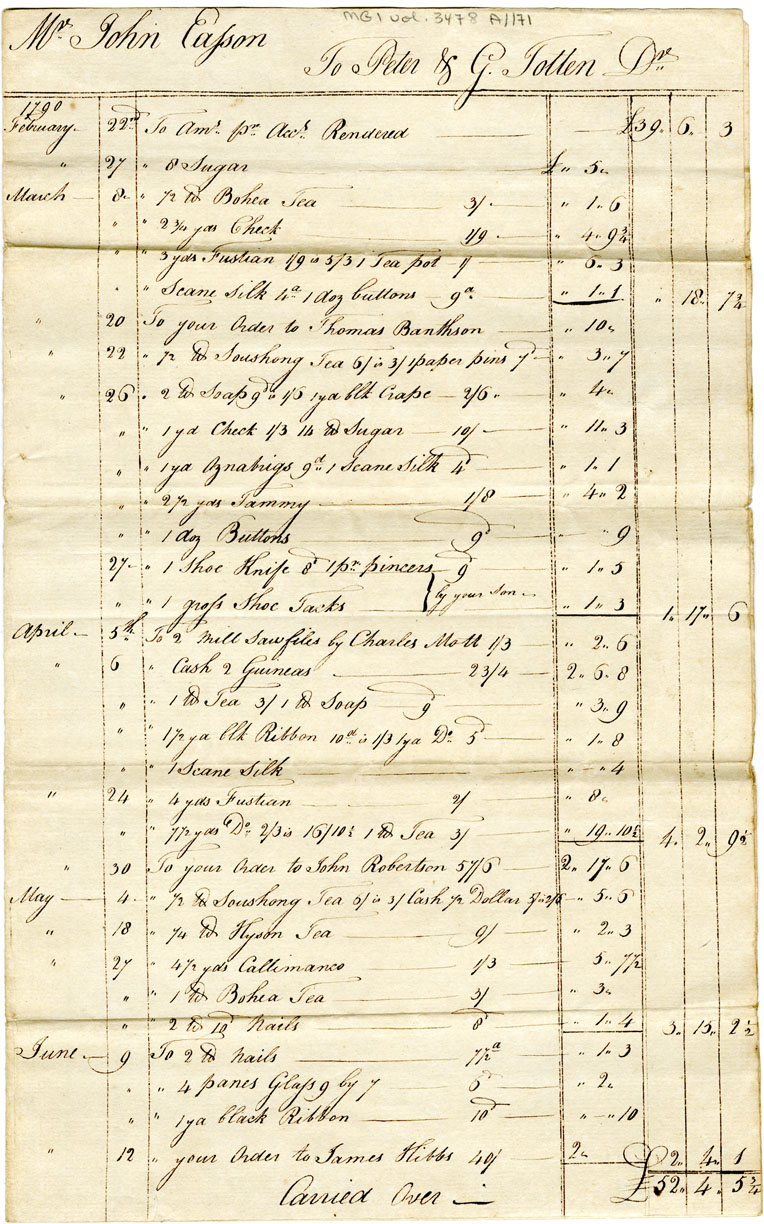 MG1 vol. 3478 A/171
Mr John Easson
To Peter & G. Totten Dr
1790
February 22nd To Amt pr Acct Rendered £39 „ 6 „ 3
„ 27 „ 8 Sugar £ „ 5 „
March 8 „ ½ lb Bohea Tea 3/ „ 1 „ 6
„ „ 2¾ yds Check 1/9 „ 4 „ 9¾
„ „ 3 yds Fustian 1/9 is 5/3 1 Tea pot 1/ „ 6 „ 3
„ „ Scane Silk 4d 1 doz buttons 9d „ 1 „ 1 „ 18 „ 7¾
„ 20 To your Order to Thomas Banthson „ 10 „
„ 22 „ ½ lb Soushong Tea 6/ is 3/ 1 paper pins 7d „ 3 „ 7
„ 26 „ 2 lb Soap 9d is 1/6 1 yd blk Crape 2/6 „ 4 „
„ „ 1 yd Check 1/3 14 lb Sugar 10/ „ 11 „ 3
„ „ 1 yd Oznabrigs 9d „ 1 Scane Silk 4d „ 1 „ 1
„ „ 2½ yds Tammy 1/8 „ 4 „ 2
„ „ 1 doz Buttons 9d „ „ 9
27 „ 1 Shoe Knife 8d 1 pr pincers 9d „ 1 „ 5
„ „ 1 gross Shoe Tacks } by your Son „ 1 „ 3 1 „ 17 „ 6
April 5th To 2 Mill Saw files by Charles Mott 1/3 „ 2 „ 6
„ 6 „ Cash 2 Guineas 23/4 2 „ 6 „ 8
„ „ 1 lb Tea 3/ 1 lb Soap 9 „ 3 „ 9
„ „ 1½ yd blk Ribbon 10d is 1/3 1 yd Do 5d „ 1 „ 8
„ „ 1 Scane Silk „ „ 4
„ 24 „ 4 yds Fustian 2/ „ 8 „
„ „ 7½ yds Do 2/3 is 16/10½ 1 lb Tea 3/ „ 19 „ 10½ 4 „ 2 „ 9½
„ 30 To your Order to John Robertson 57/6 2 „ 17 „ 6
May 4 „ ½ lb Soushong Tea 6/ is 3/ Cash ½ Dollar 5/ is 2/6 „ 5 „ 6
„ 18 „ ¼ lb Hyson Tea 9/ „ 2 „ 3
„ 27 „ 4½ yds Callimanco 1/3 5 „ 7½
„ „ 1 lb Bohea Tea 3/ „ 3 „
„ „ 2 lb 10d Nails 8d „ 1 „ 4 3 „ 15 „ 2½
June 9 To 2 lb Nails 7½d „ 1 „ 3
„ „ 4 panes Glass 9 by 7 6d „ 2 „
„ „ 1 yd black Ribbon 10d „ „ 10
„ 12 „ your Order to James Hibbs 40/ 2 „ £2 „ 4 „ 1
Carried Over £52 „ 4 „ 5¾